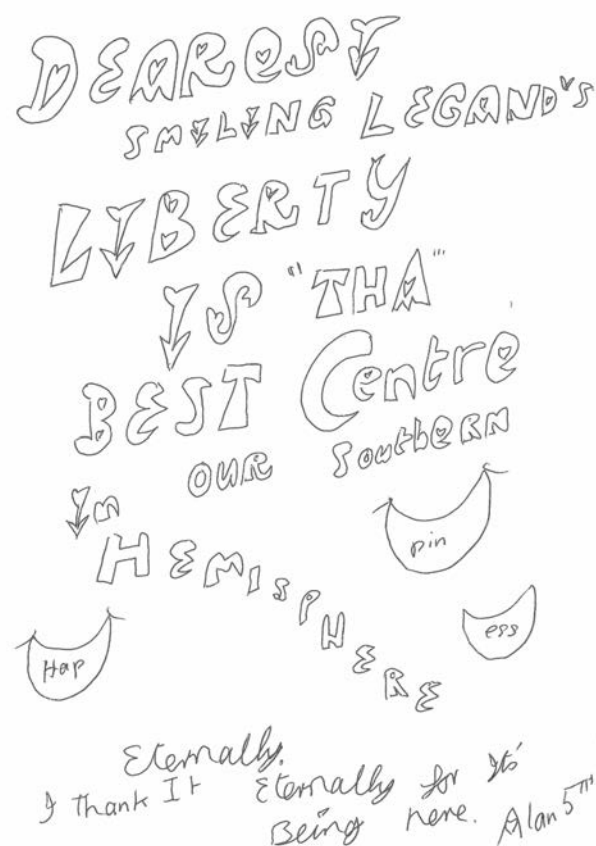 DEAREST
SMILING LEGAND'S
LIBERTY
IS "THA"
BEST Centre
In OUR Southern
HEMISPHERE
Hap
pin
ess
Eternally.
I Thank It Eternally for Its'
Being here. Alan 5TH